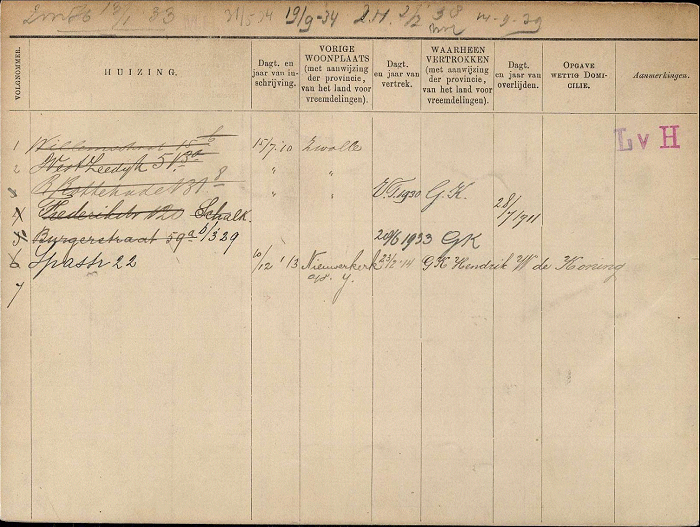 19/9-34 14-9-39
VOLGNOMMER.
HUIZING.
Dagt. en jaar van inschrijving.
VORIGE WOONPLAATS (met aanwijzing der provincie, van het land voor vreemdelingen).
Dagt. en jaar van vertrek.
WAARHEEN VERTROKKEN (met aanwijzing der provincie, van het land voor vreemdelingen).
Dagt. en jaar van overlijden.
OPGAVE WETTIG DOMICILIE.
Aanmerkingen.
LvH
1 15/7'10 Zwolle
2 West Zeedijk " "
3 " " V.T.1930 G.K. 28/7 1911
4 Schalk.
5 Burgerstraat 59a 5/3 29 20/6 1933 GK
6 Spastr 22 10/12 '13 Nieuwerkerk a/d Y. 23/2-14 G K Hendrik W de Koning
7